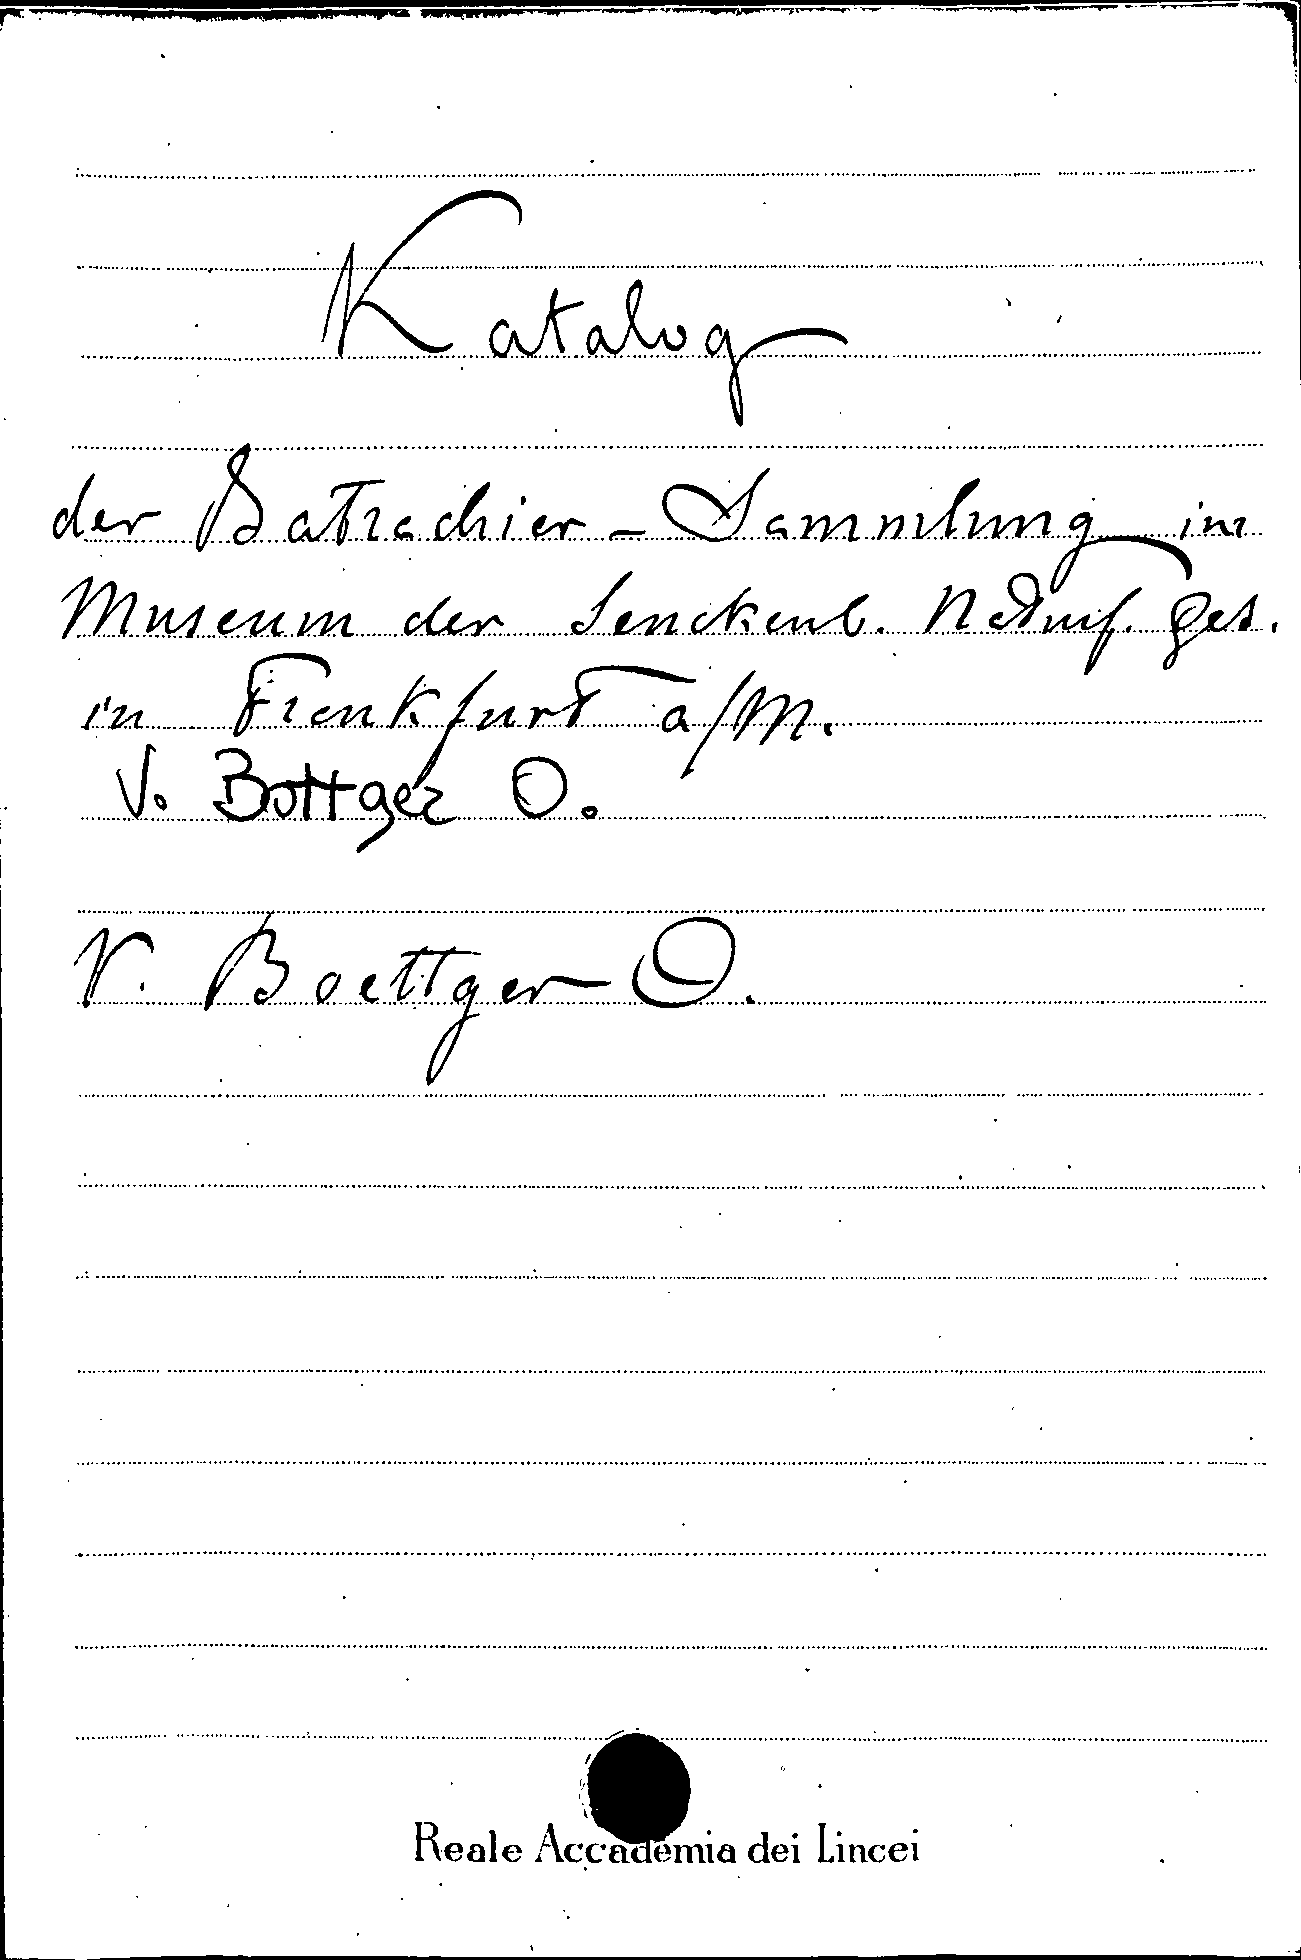 Katalog
der Batrachier - Sammlung im
Museum der Senckenb. Naturf. Ges.
in Frankfurt a/M.
V. Bottger O.
V. Boettger O.
Reale Accademia dei Lincei